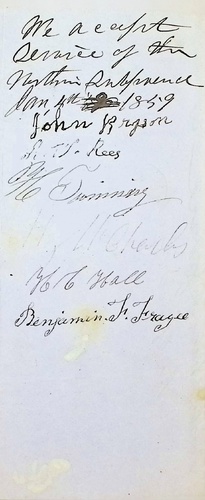 We accept
Service of the
within Subpoena
Jan 4th 1859
John Bryson
S. T. Rees
Twining
H C Hall
Benjamin. F. Frazee